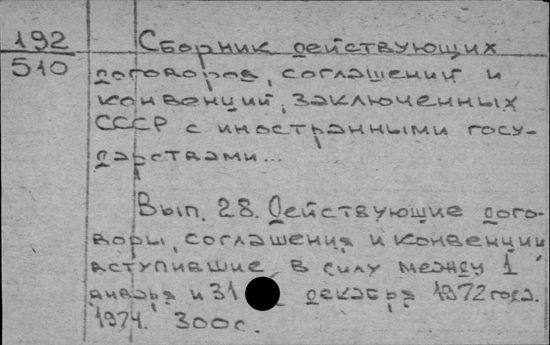 192
510
Сборник действующих
договоров, соглашений и
конвенций, заключенных
СССР с иностранными госу-
дарствами...
Вып. 28. Действующие дого-
воры, соглашения и конвенции,
вступившие в силу между 1
января и 31 декабря 1972 года.
1974. 300 с.